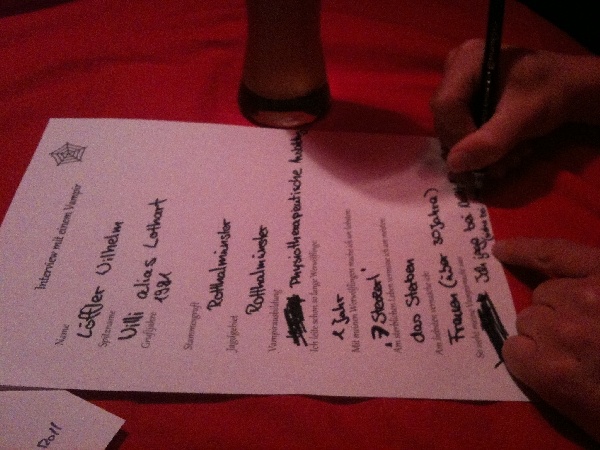 Interview mit einem Vampir
Name
Löffler Wilhelm
Spitzname
Willi alias Lothart
Gruftjahr
1981
Stammgruft
Rotthalmünster
Jagdgebiet
Rotthalmünster
Vampirausbildung
Physiotherapeutische
Ich leite schon so lange Werwölfinge
1 Jahr
Mit meinen Werwölfingen mache ich am liebsten
"7 Staxerl"
Am sterblichen Leben vermisse ich am meisten
das Sterben
Am liebsten vernasche ich
Frauen (über 30 Jahre)
Ich jage bei
Roll